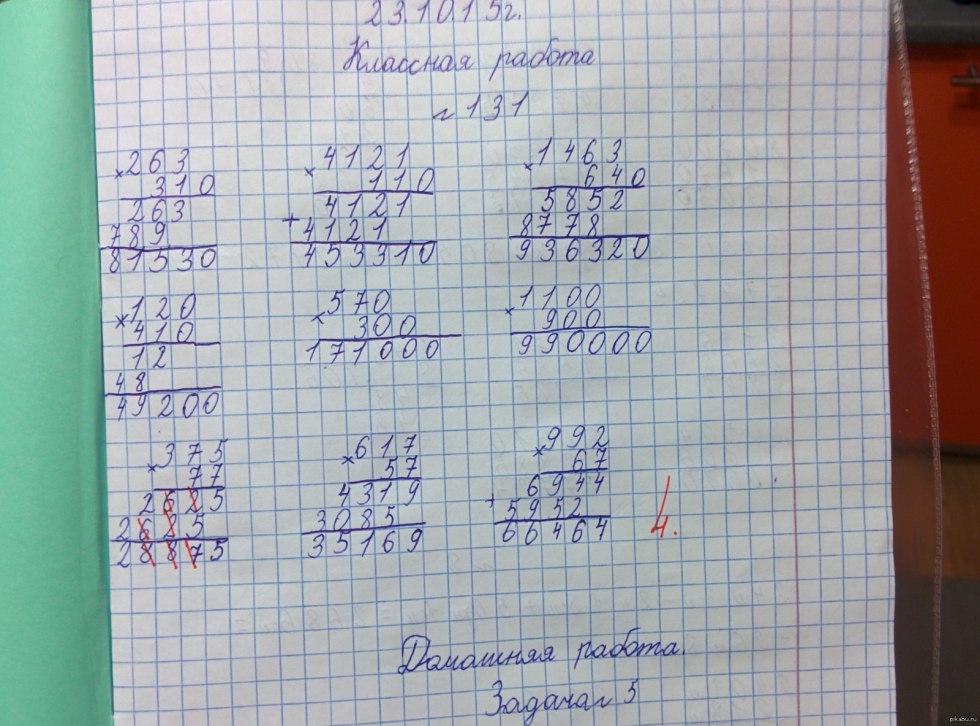 23.10.15г.
Классная работа
№131
×263
310
263
789
81530
×4121
110
4121
+4121
453310
×1463
640
5852
8778
936320
×120
410
12
48
49200
×570
300
171000
×1100
900
990000
×375
77
2625
2625
28875
×617
57
4319
3085
35169
×992
67
6944
+5952
66464
4.
Домашняя работа.
Задача№5
pikabu.ru